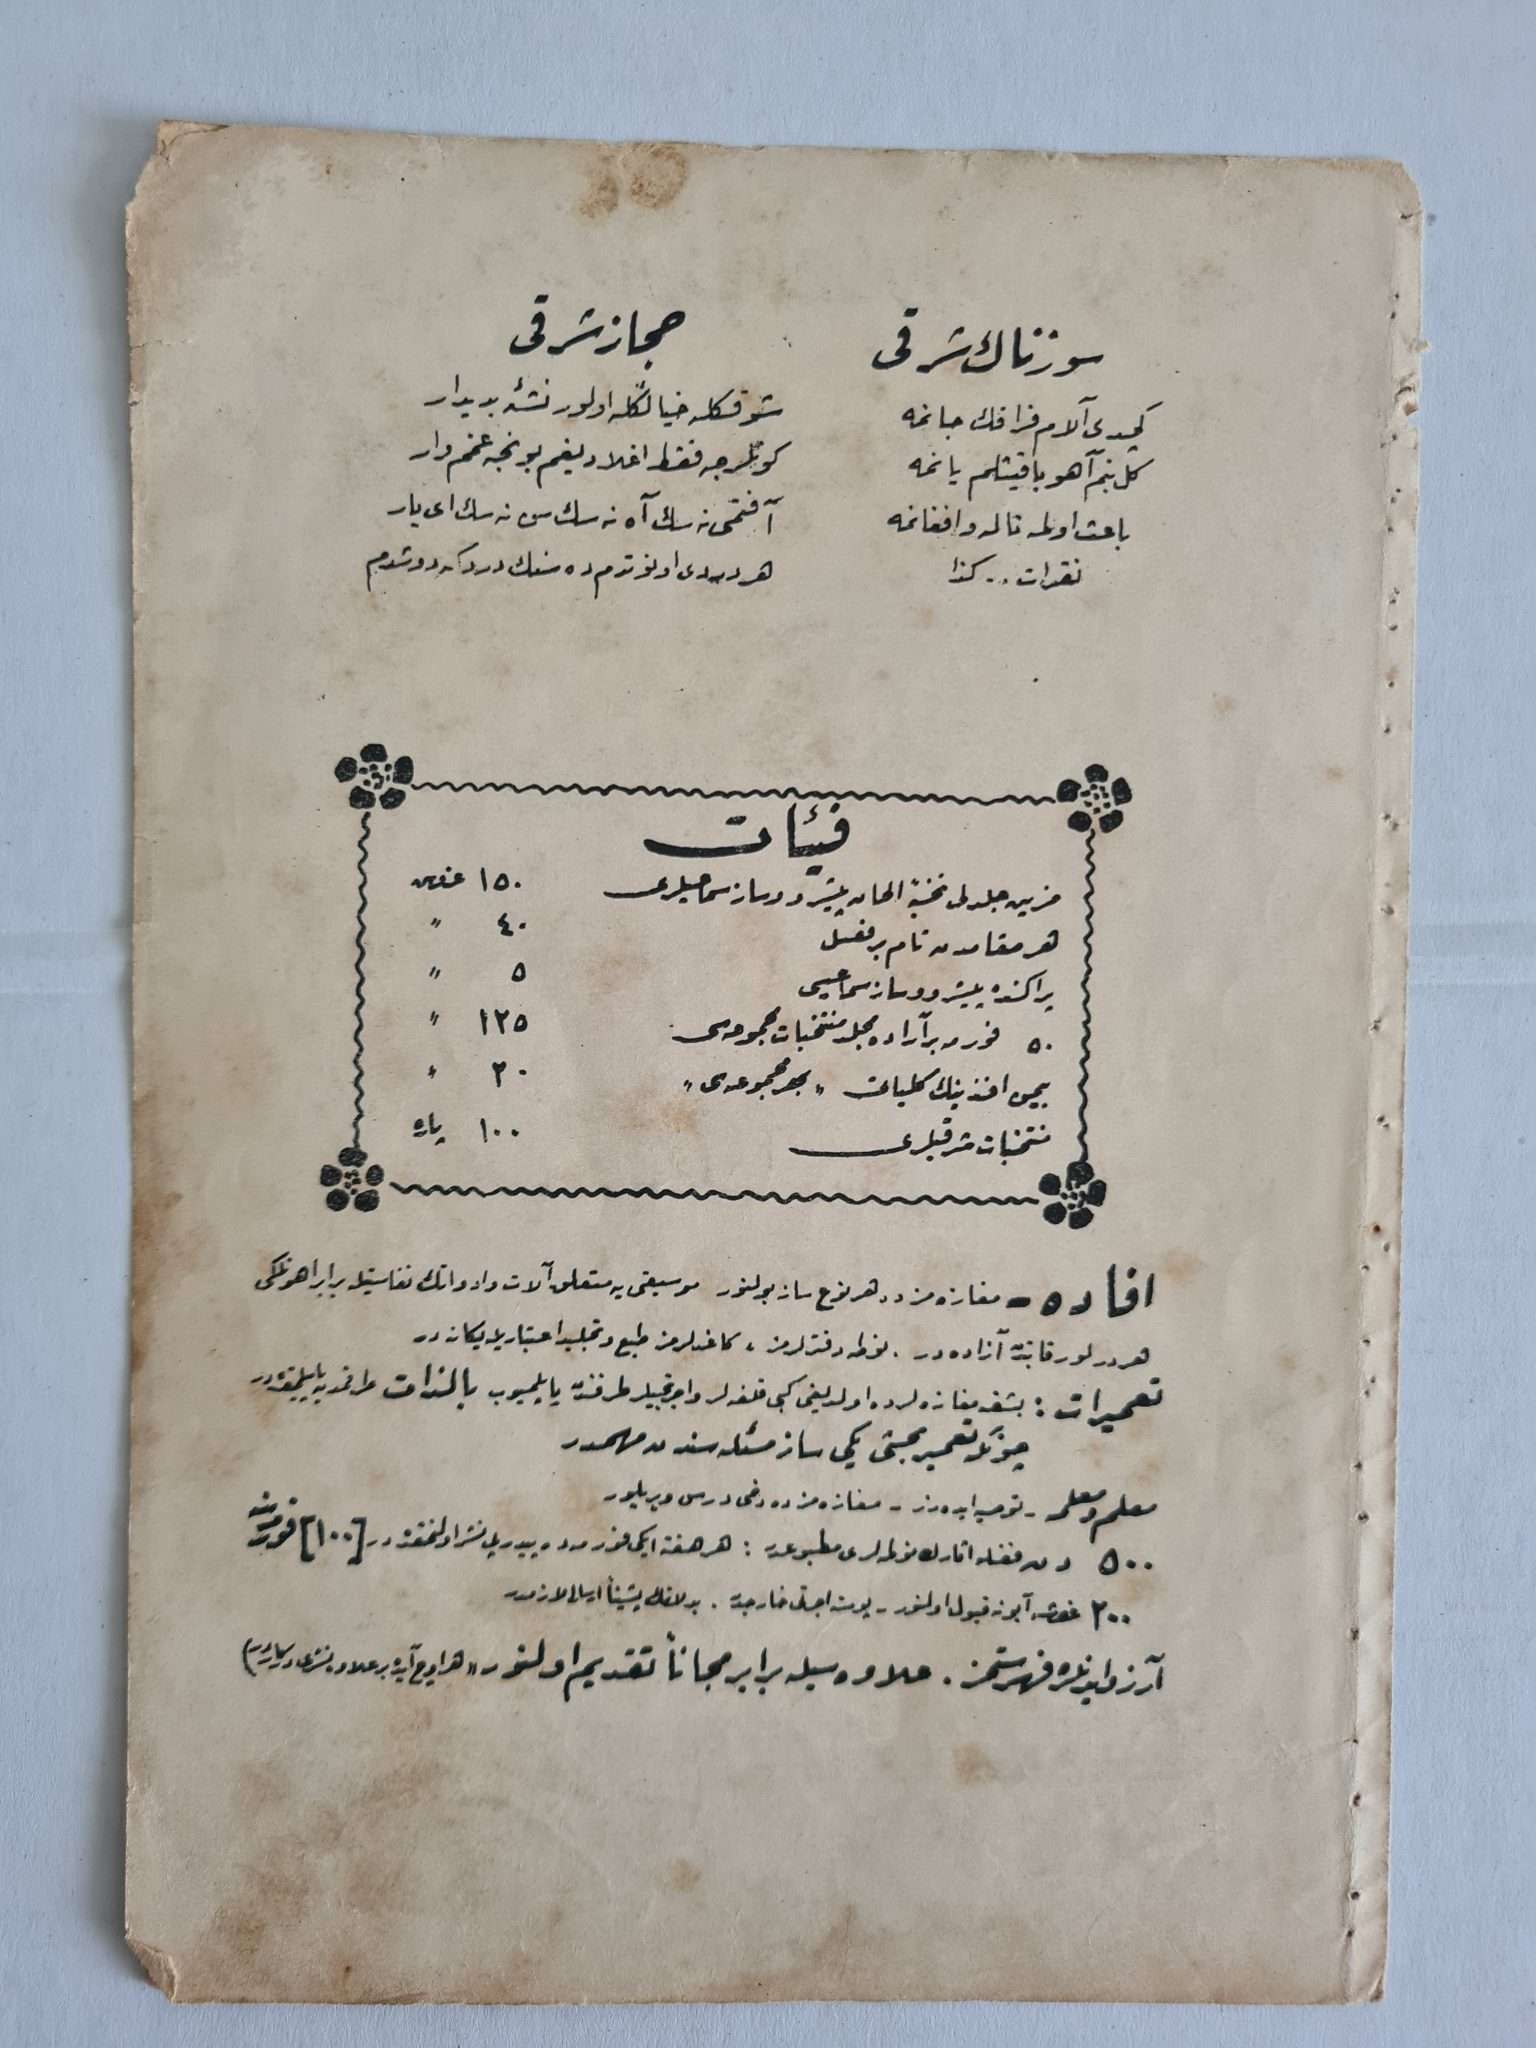 سوزناك شرقی
كچدی آلام فراقك جانمه
كل بنم آهو باقیشلم یانمه
باعث اولمه ناله و افغانمه
نقرات .. كذا
حجاز شرقی
شوقكله خیالكله اولور نشئه بدیدار
كوكلرجه فقط اغلادیغم بونجه غمم وار
آفتمی نه سك آه نه سك سن نه سك ای یار
هر دردی اونوتدم ده سنك دردكه دوشدم
فیئات
مزین جلدلی نخبهٔ الحان پیشرو و ساز سماعیلری ١٥٠ غروش
هر مقامدن تام بر فصل ٤٠ "
پراكنده پیشرو و ساز سماعیسی ٥ "
٥٠ فورمه بر آراده مجلد منتخبات مجموعه سی ١٢٥ "
بیمن افندینك كلیاتی " بحر مجموعه سی " ٢٠ "
منتخبات شرقیلری ١٠٠ پاره
افاده - مغازه مزده هر نوع ساز بولنور موسیقی یه متعلق آلات و ادواتك نفاستیله برابر اهونلكی
هر درلو رقابتدن آزاده در . نوطه دفترلرمز ، كاغدلرمز طبع و تجلید اعتباریله یكانه در
تعمیرات : بشقه مغازه لرده اولدیغی كبی قلفه لر واجیرلر طرفندن یاپلمیوب بالذات طرفمدن یاپیلمقده در
چونكه تعمیر بحثی یكی ساز مسئله سندن مهمدر
معلم و معلمه - توصیه ایده رز - مغازه مزده دخی درس ویریلور
٥٠٠ دن فضله آثارك نوطه لری مطبوعدر : هر هفته ایكی فورمه ده پیدرپی نشر اولنمقده در [١٠٠] فورمه سنه
٢٠٠ غروشه آبونه قبول اولنور - پوسته اجرتی خارجدر . بدلاتك پیشیناً ارسالی لازمدر
آرزو ایدنلره فهرستمز . علاوه سیله برابر مجاناً تقدیم اولنور " هر اوچ آیده بر علاوه نشر